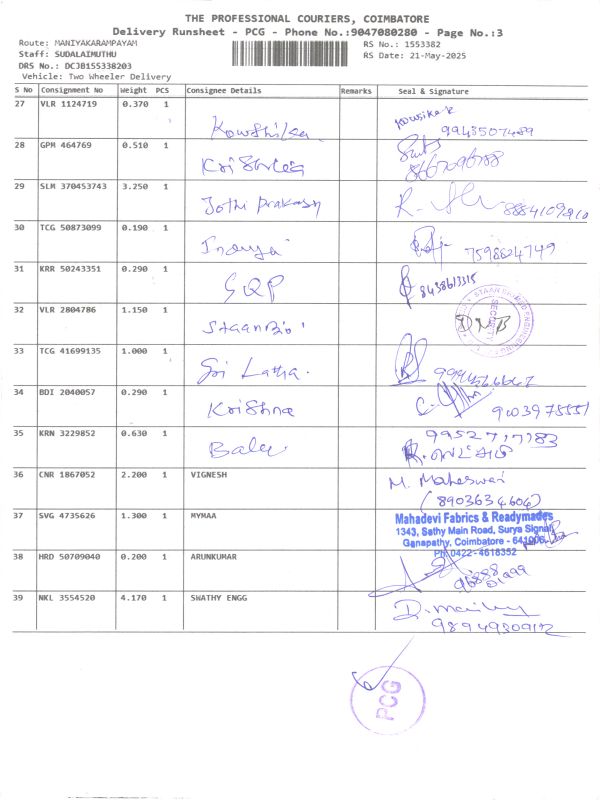 THE PROFESSIONAL COURIERS, COIMBATORE
Delivery Runsheet - PCG - Phone No.:9047080280 - Page No.:3
Route: MANIYAKARAMPAYAM
RS No.: 1553382
Staff: SUDALAIMUTHU
RS Date: 21-May-2025
DRS No.: DCJB155338203
Vehicle: Two Wheeler Delivery
S No Consignment No Weight PCS Consignee Details Remarks Seal & Signature
27 VLR 1124719 0.370 1 Kowshika Kowsika.k
9943507489
28 GPM 464769 0.510 1
29 SLM 370453743 3.250 1 Jothi Prakash
30 TCG 50873099 0.190 1 7598624749
31 KRR 50243351 0.290 1 8438613315
32 VLR 2804786 1.150 1 SECURITY
33 TCG 41699135 1.000 1 Sri Latha.
34 BDI 2040057 0.290 1 Krishna
35 KRN 3229852 0.630 1 Balu
36 CNR 1867052 2.200 1 VIGNESH M. Maheswari
(8903634604)
37 SVG 4735626 1.300 1 MYMAA Mahadevi Fabrics & Readymades
1343, Sathy Main Road, Surya Signal,
Ganapathy, Coimbatore - 641006.
PH: 0422-4618352
38 HRD 50709040 0.200 1 ARUNKUMAR
39 NKL 3554520 4.170 1 SWATHY ENGG
PCG